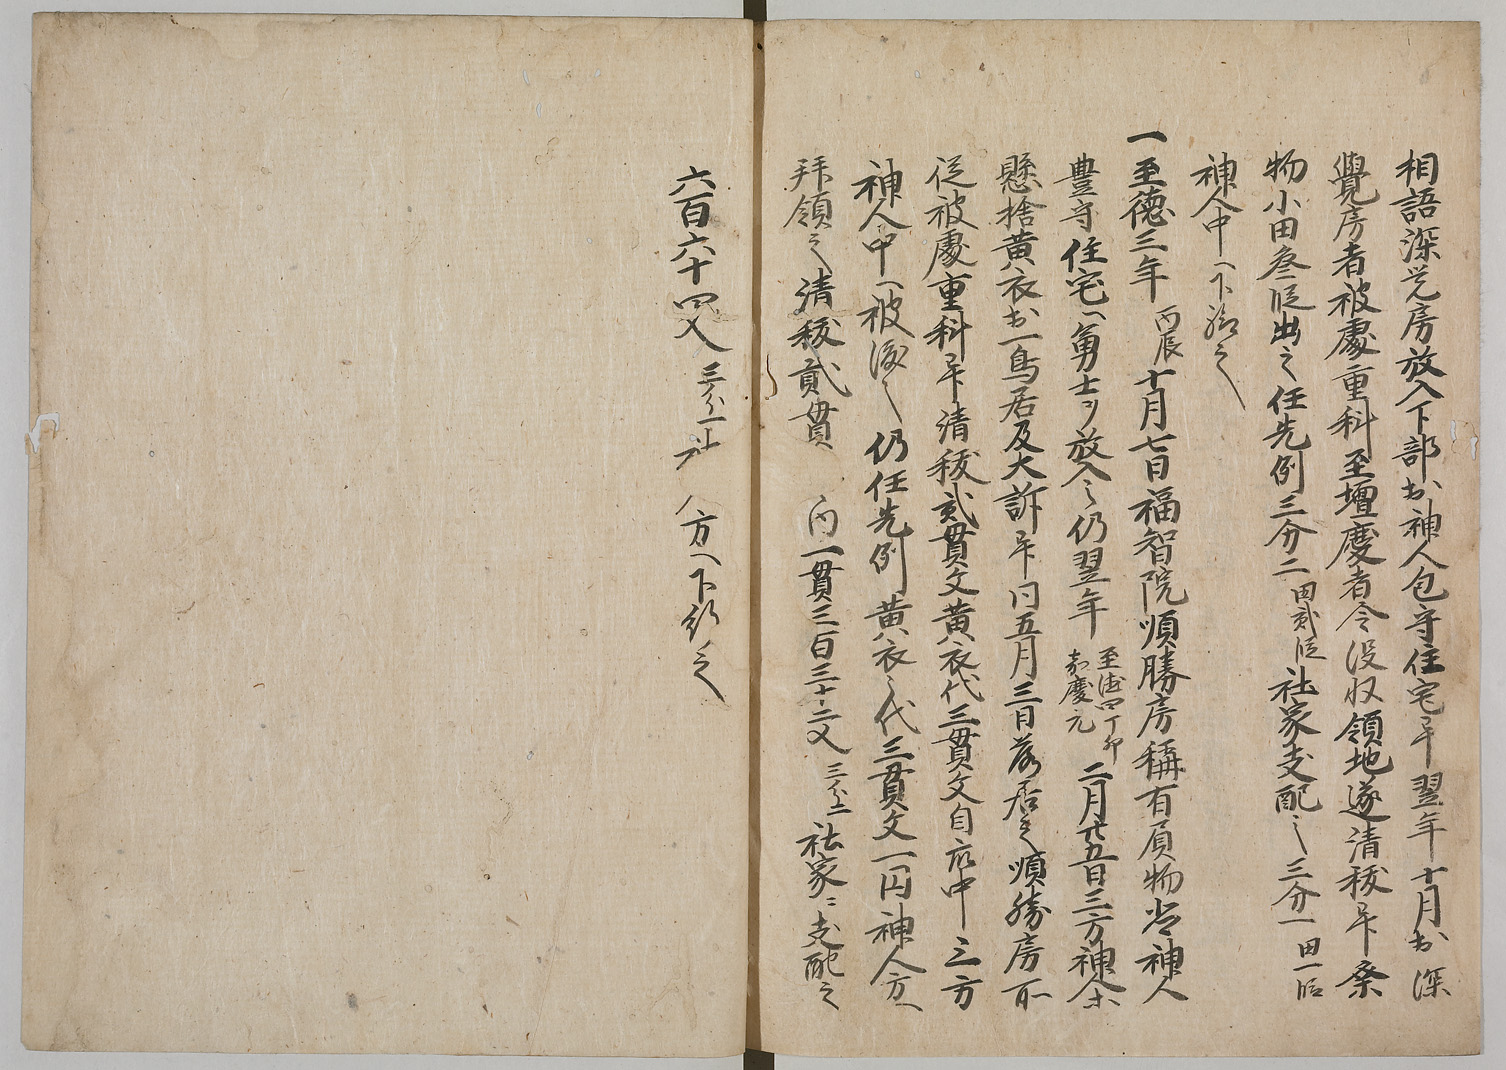 相語深覚房放入下部於神人包守住宅畢翌年十月於深
覺房者被處重科至壇慶者令没収領地遂清秡畢祭
物小田叁段出之任先例三分二田貳段社家支配之三分一田一段
神人中ヘ下給之
一至徳三年丙辰十月七日福智院順勝房稱有質物当神人
豊守住宅ヘ勇士ヲ放入之仍翌年至徳四丁卯嘉慶元二月廿五日三方神人等
懸捨黄衣於一鳥居及大訴畢同五月三日落居之順勝房所
従被處重科畢清秡貳貫文黄衣代三貫文自衆中三方
神人中ヘ被渡之仍任先例黄衣之代三貫文一円神人方ヘ
拜領之清秡貳貫内一貫三百三十二文三分二社家ニ支配之
六百六十四文三分一神人方ヘ下行之